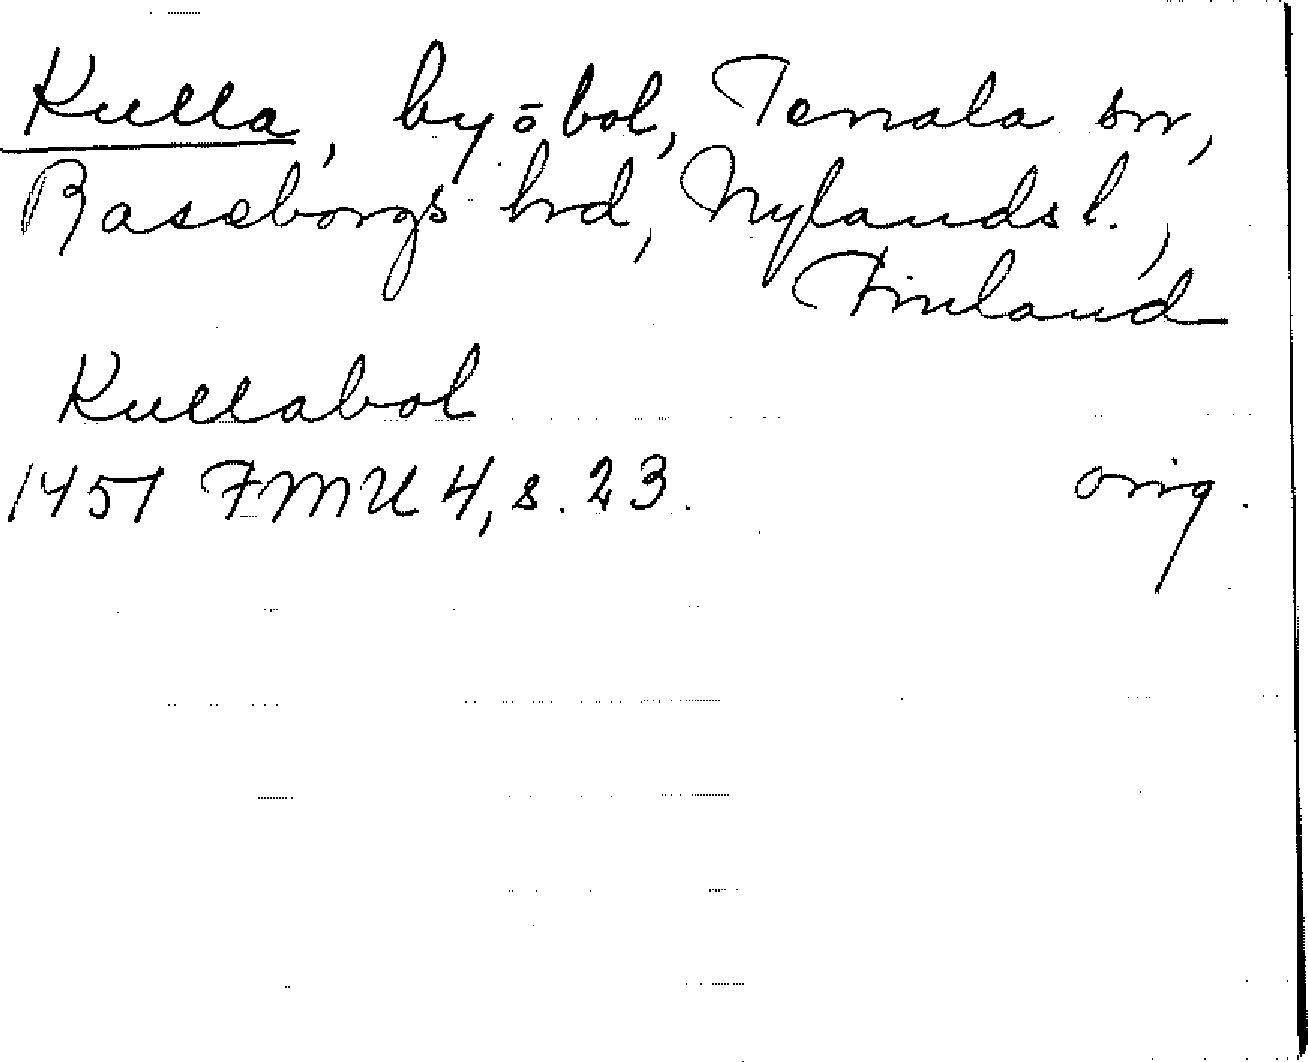 Kulla, by o bol, Tenala sn,
Raseborgs hrd, Nylands l.,
Finland
Kullabol
1451 FMU 4, s. 23. orig.